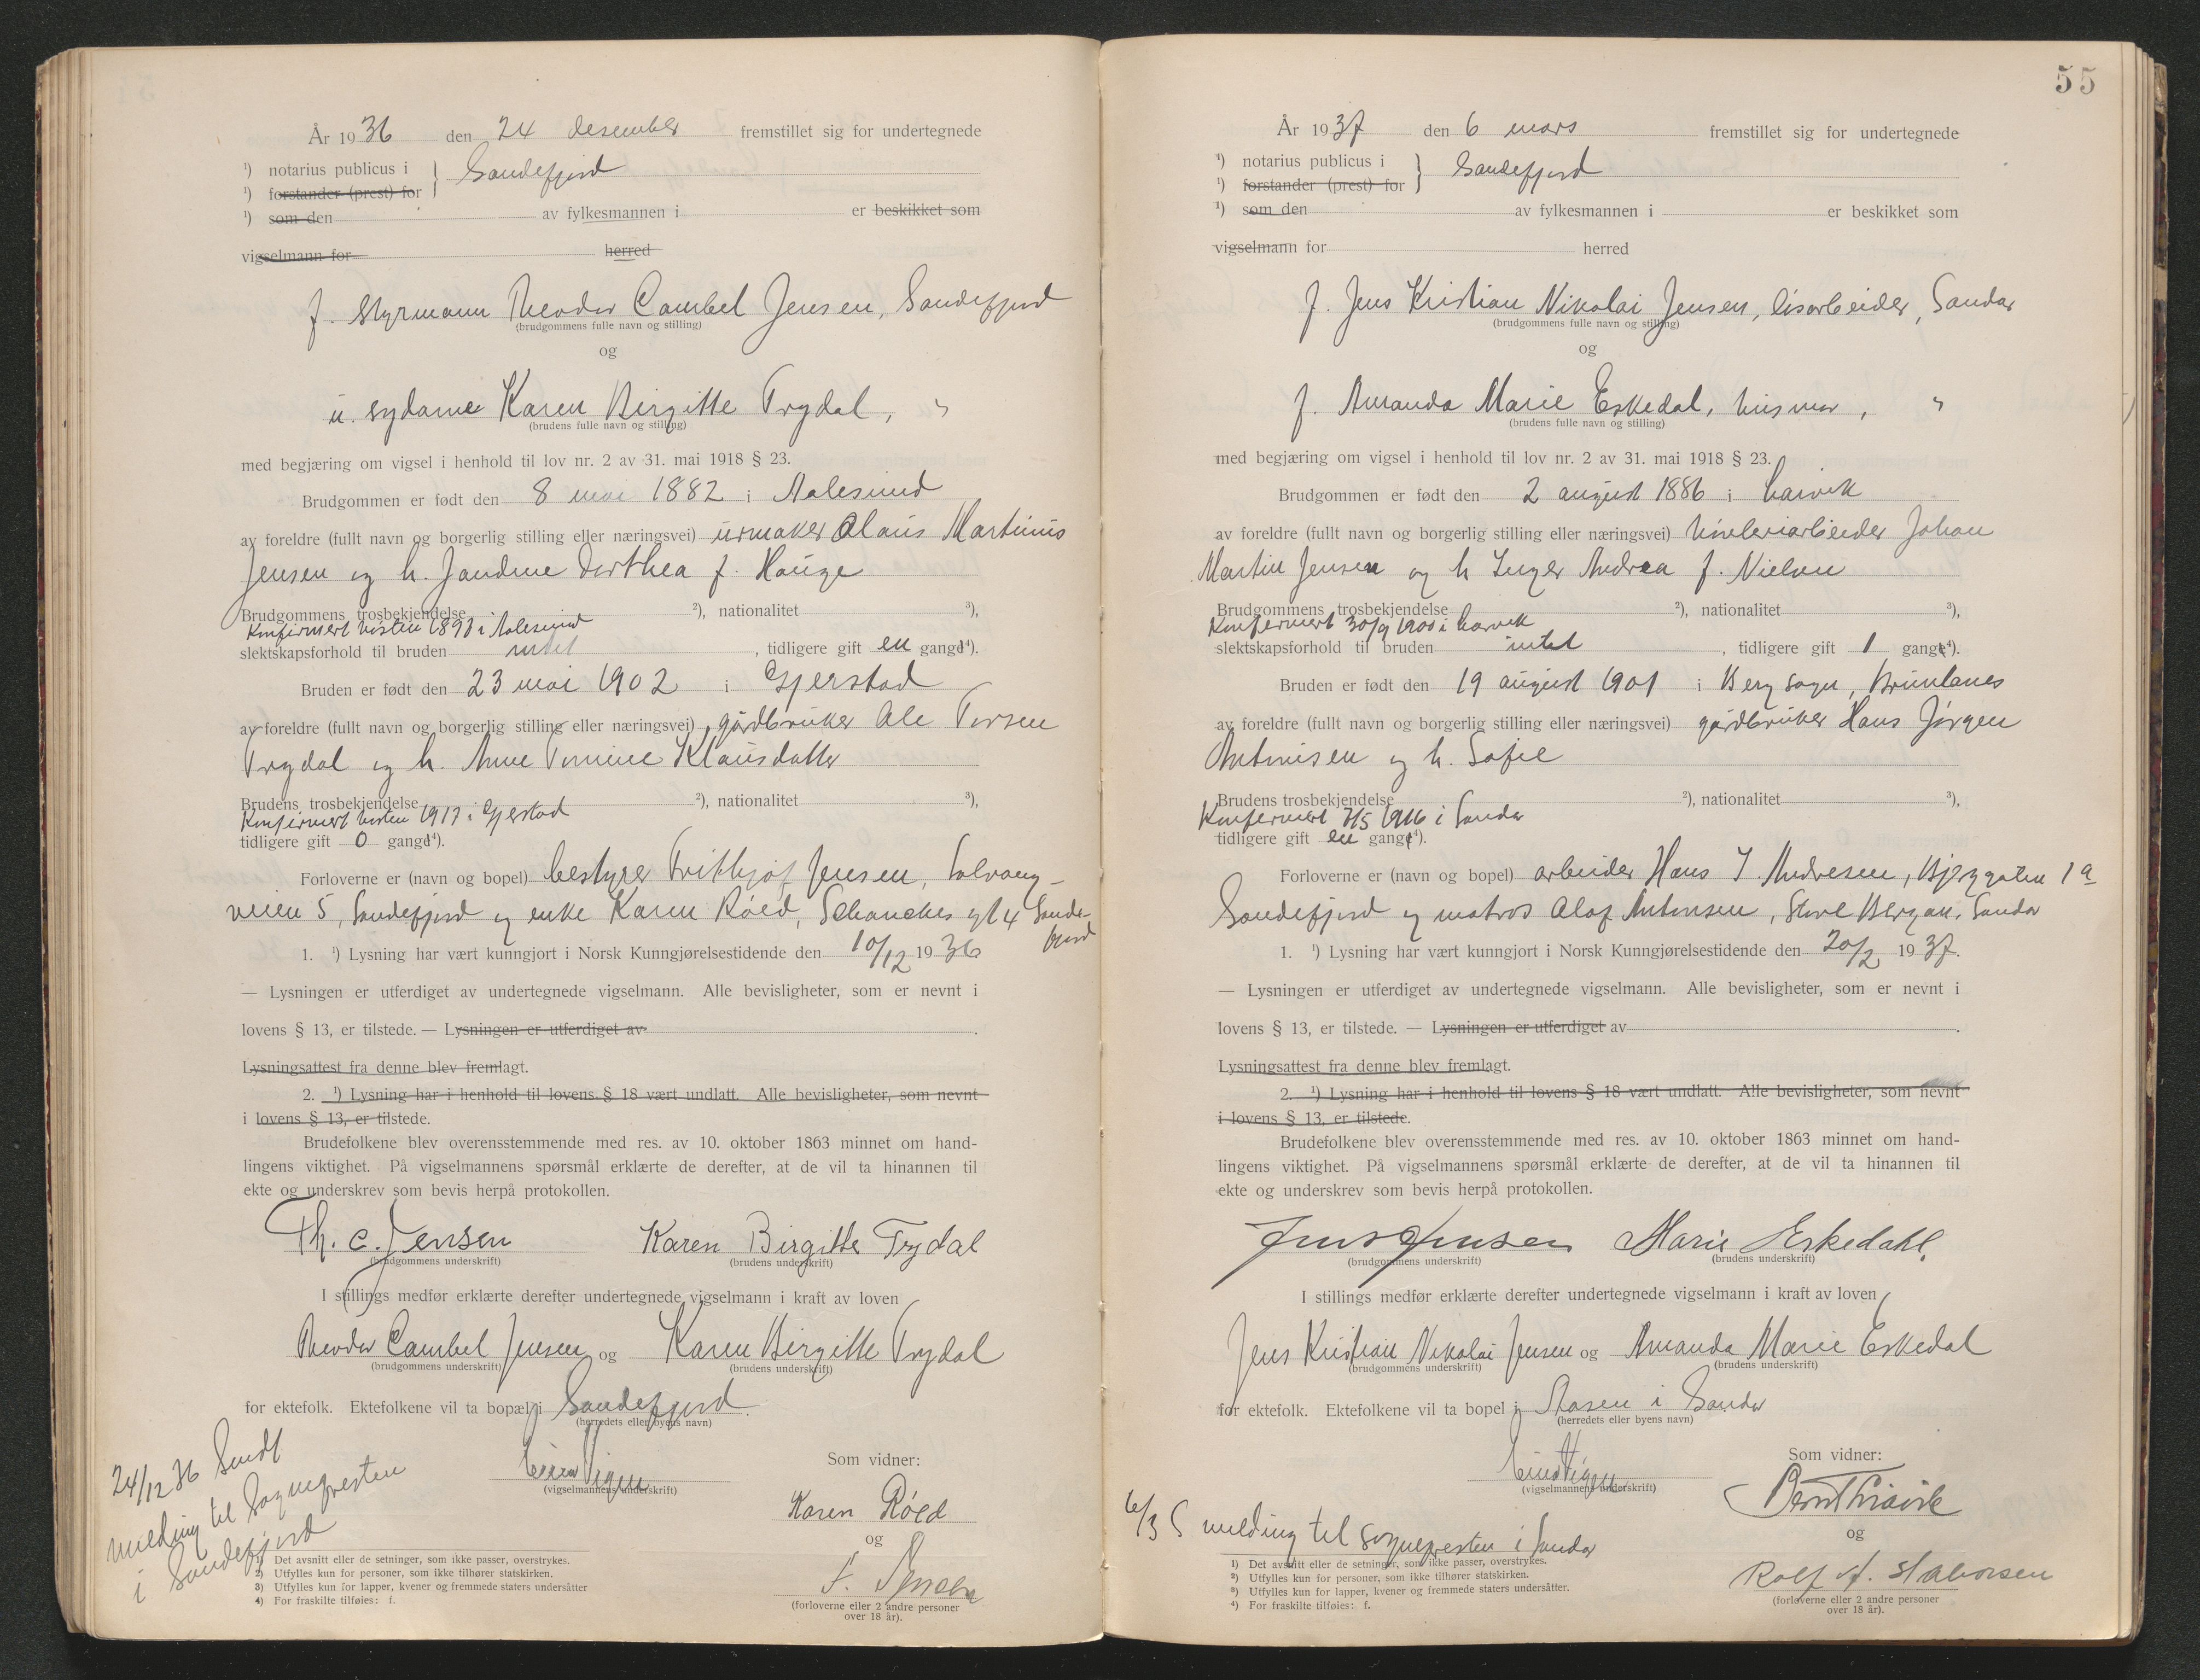 År 1936 den 24 desember fremstillet sig for undertegnede
¹) notarius publicus i } Sandefjord
¹) forstander (prest) for
¹) som den av fylkesmannen i er beskikket som
vigselmann for herred
f. Styrmann Theodor Cambel Jensen, Sandefjord
(brudgommens fulle navn og stilling)
og
u. sydame Karen Birgitte Trydal, "
(brudens fulle navn og stilling)
med begjæring om vigsel i henhold til lov nr. 2 av 31. mai 1918 § 23.
Brudgommen er født den 8 mai 1882 i Aalesund
av foreldre (fullt navn og borgerlig stilling eller næringsvei) urmaker Olaus Martinius
Jensen og h. Jandine Dorthea f. Hauge
Brudgommens trosbekjendelse ²), nationalitet ³),
Konfirmert høsten 1897 i Aalesund
slektskapsforhold til bruden intet , tidligere gift en gang ⁴).
Bruden er født den 23 mai 1902 i Gjerstad
av foreldre (fullt navn og borgerlig stilling eller næringsvei) gårdbruker Ole Torsen
Trydal og h. Anne Tomine Klausdatter
Brudens trosbekjendelse ²), nationalitet ³),
Konfirmert høsten 1917 i Gjerstad
tidligere gift 0 gange ⁴).
Forloverne er (navn og bopel) bestyrer Frithjof Jensen, Solvang-
veien 5, Sandefjord og enke Karen Röed, Schanches gt 4 Sande-
fjord
1. ¹) Lysning har vært kunngjort i Norsk Kunngjørelsestidende den 10/12 1936
— Lysningen er utferdiget av undertegnede vigselmann. Alle bevisligheter, som er nevnt i
lovens § 13, er tilstede. — Lysningen er utferdiget av
Lysningsattest fra denne blev fremlagt.
2. ¹) Lysning har i henhold til lovens § 18 vært undlatt. Alle bevisligheter, som nevnt
i lovens § 13, er tilstede.
Brudefolkene blev overensstemmende med res. av 10. oktober 1863 minnet om hand-
lingens viktighet. På vigselmannens spørsmål erklærte de derefter, at de vil ta hinannen til
ekte og underskrev som bevis herpå protokollen.
Th. C. Jensen Karen Birgitte Trydal
(brudgommens underskrift) (brudens underskrift)
I stillings medfør erklærte derefter undertegnede vigselmann i kraft av loven
Theodor Cambel Jensen og Karen Birgitte Trydal
(brudgommens underskrift) (brudens underskrift)
for ektefolk. Ektefolkene vil ta bopæl i Sandefjord
(herredets eller byens navn)
24/12 36 Sendt
melding til Sognepresten
i Sandefjord
(vigselmannens underskrift)
Som vidner:
Karen Röed
og
F. Jensen
(forloverne eller 2 andre personer
over 18 år).
1) Det avsnitt eller de setninger, som ikke passer, overstrykes.
2) Utfylles kun for personer, som ikke tilhører statskirken.
3) Utfylles kun for lapper, kvener og fremmede staters undersåtter
4) For fraskilte tilføies: f.
55
År 1937 den 6 mars fremstillet sig for undertegnede
¹) notarius publicus i } Sandefjord
¹) forstander (prest) for
¹) som den av fylkesmannen i er beskikket som
vigselmann for herred
f. Jens Kristian Nikolai Jensen, løsarbeider, Sandar
(brudgommens fulle navn og stilling)
og
f. Amanda Marie Eskedal, husmor, "
(brudens fulle navn og stilling)
med begjæring om vigsel i henhold til lov nr. 2 av 31. mai 1918 § 23.
Brudgommen er født den 2 august 1886 i Larvik
av foreldre (fullt navn og borgerlig stilling eller næringsvei) høvleriarbeider Johan
Martin Jensen og h Inger Andrea f. Nielsen
Brudgommens trosbekjendelse ²), nationalitet ³),
Konfirmert 30/9 1900 i Larvik
slektskapsforhold til bruden intet , tidligere gift 1 gang ⁴).
Bruden er født den 19 august 1901 i Berg sogn, Brunlanes
av foreldre (fullt navn og borgerlig stilling eller næringsvei) gårdbruker Hans Jørgen
Antonisen og h. Sofie
Brudens trosbekjendelse ²), nationalitet ³),
Konfirmert 7/5 1916 i Sandar
tidligere gift en gang ⁴).
Forloverne er (navn og bopel) arbeider Hans J. Andresen, Bjerggaten 1 a
Sandefjord og matros Olaf Antonsen, Store Bergan, Sandar
1. ¹) Lysning har vært kunngjort i Norsk Kunngjørelsestidende den 20/2 1937.
— Lysningen er utferdiget av undertegnede vigselmann. Alle bevisligheter, som er nevnt i
lovens § 13, er tilstede. — Lysningen er utferdiget av
Lysningsattest fra denne blev fremlagt.
2. ¹) Lysning har i henhold til lovens § 18 vært undlatt. Alle bevisligheter, som nevnt
i lovens § 13, er tilstede.
Brudefolkene blev overensstemmende med res. av 10. oktober 1863 minnet om hand-
lingens viktighet. På vigselmannens spørsmål erklærte de derefter, at de vil ta hinannen til
ekte og underskrev som bevis herpå protokollen.
Jens Jensen Marie Eskedahl.
(brudgommens underskrift) (brudens underskrift)
I stillings medfør erklærte derefter undertegnede vigselmann i kraft av loven
Jens Kristian Nikolai Jensen og Amanda Marie Eskedal
(brudgommens underskrift) (brudens underskrift)
for ektefolk. Ektefolkene vil ta bopel i Aasen i Sandar
(herredets eller byens navn)
(vigselmannens underskrift)
6/3 S melding til sognepresten i Sandar
Som vidner:
og
Rolf
(forloverne eller 2 andre personer
over 18 år).
1) Det avsnitt eller de setninger, som ikke passer, overstrykes.
²) Utfylles kun for personer, som ikke tilhører statskirken.
³) Utfylles kun for lapper, kvener og fremmede staters undersåtter.
⁴) For fraskilte tilføies: f.